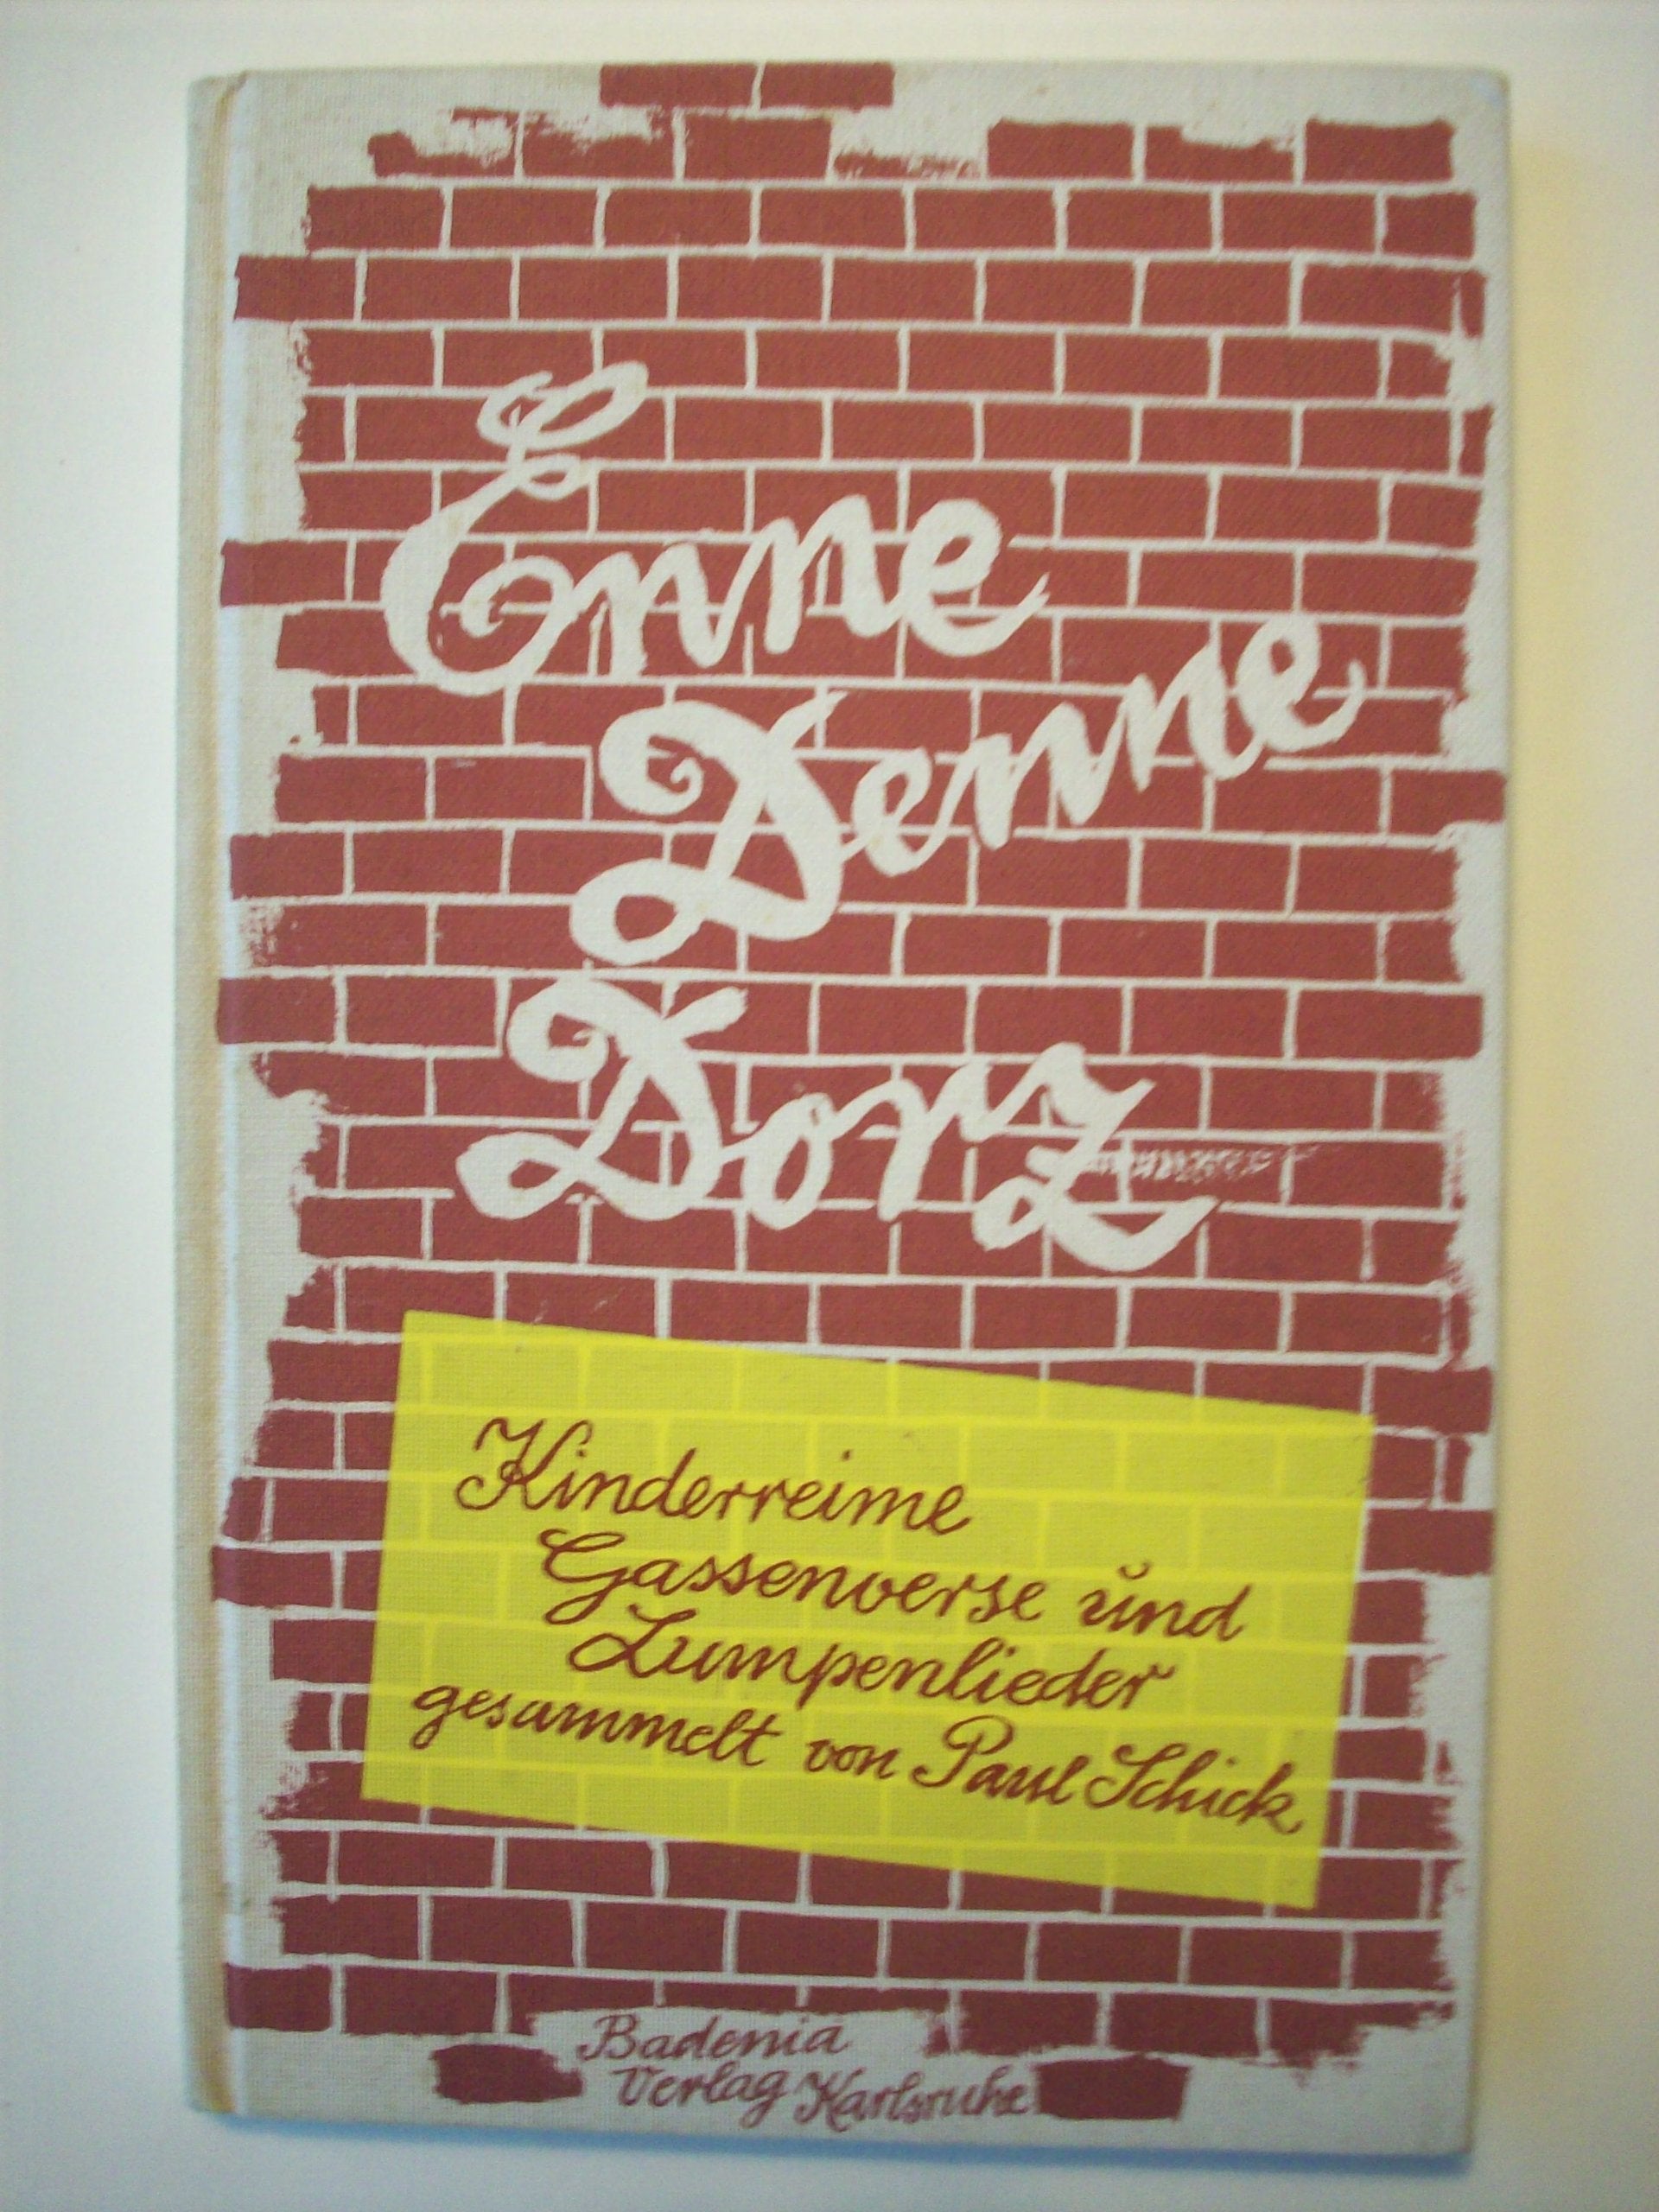 Enne
Denne
Dorz
Kinderreime
Gassenverse und
Lumpenlieder
gesammelt von Paul Schick
Badenia
Verlag Karlsruhe